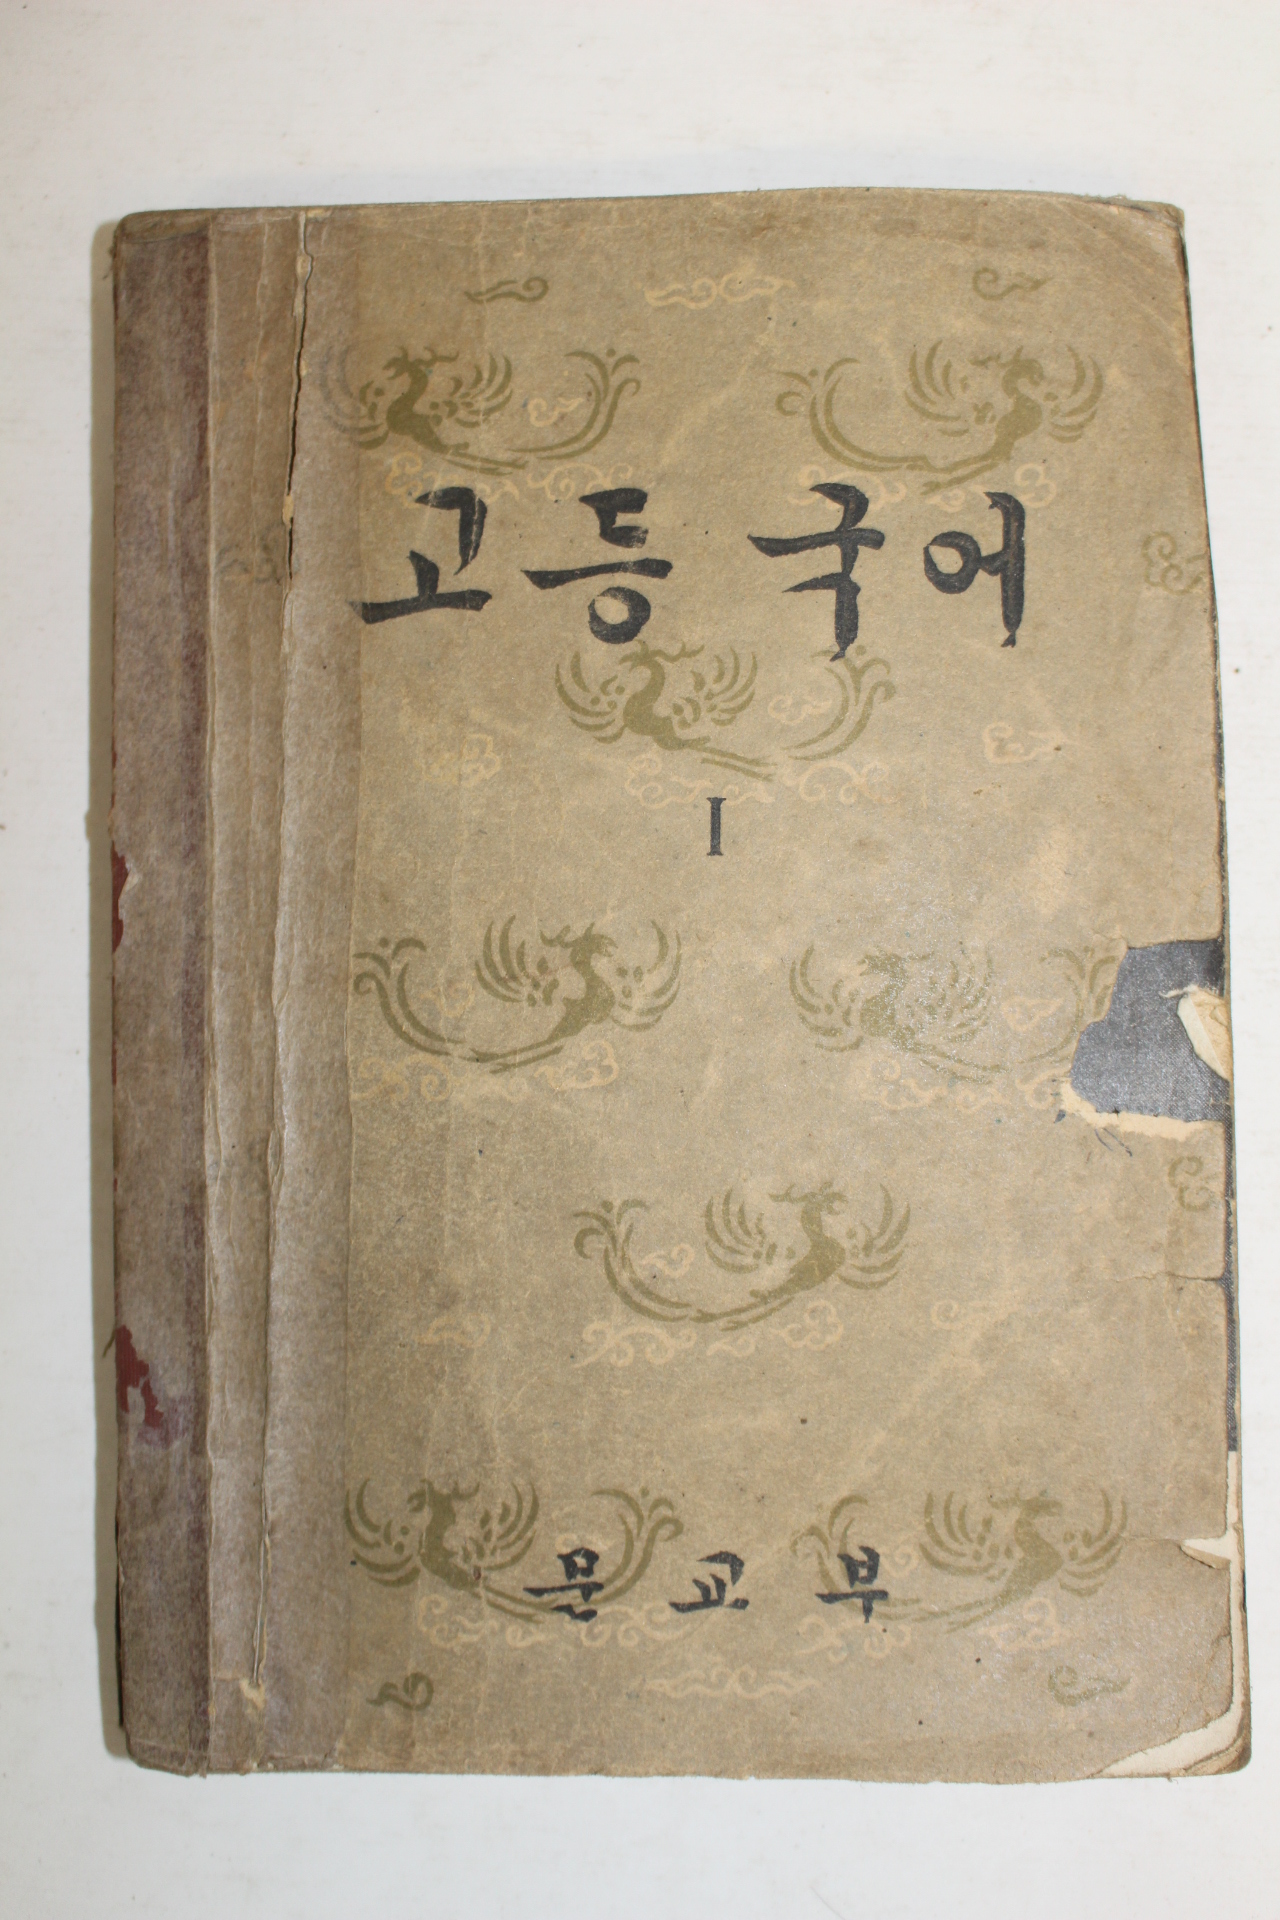 고등 국어
I
문교부